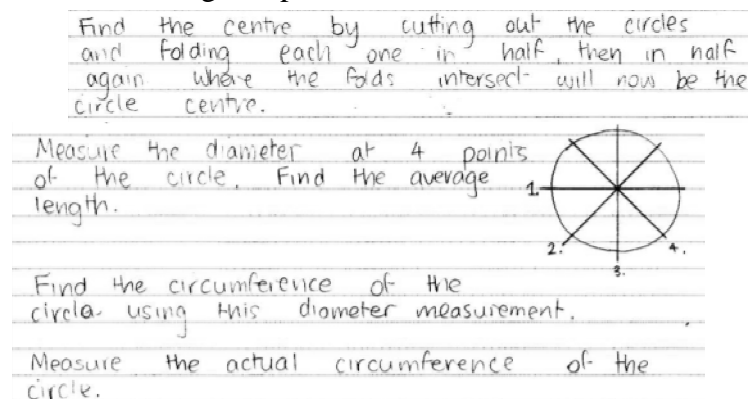 Find the centre by cutting out the circles
and folding each one in half, then in half
again. Where the folds intersect will now be the
circle centre.
Measure the diameter at 4 points
of the circle. Find the average
length.
1.
2.
3.
4.
Find the circumference of the
circle using this diometer measurement.
Measure the actual circumference of the
circle.